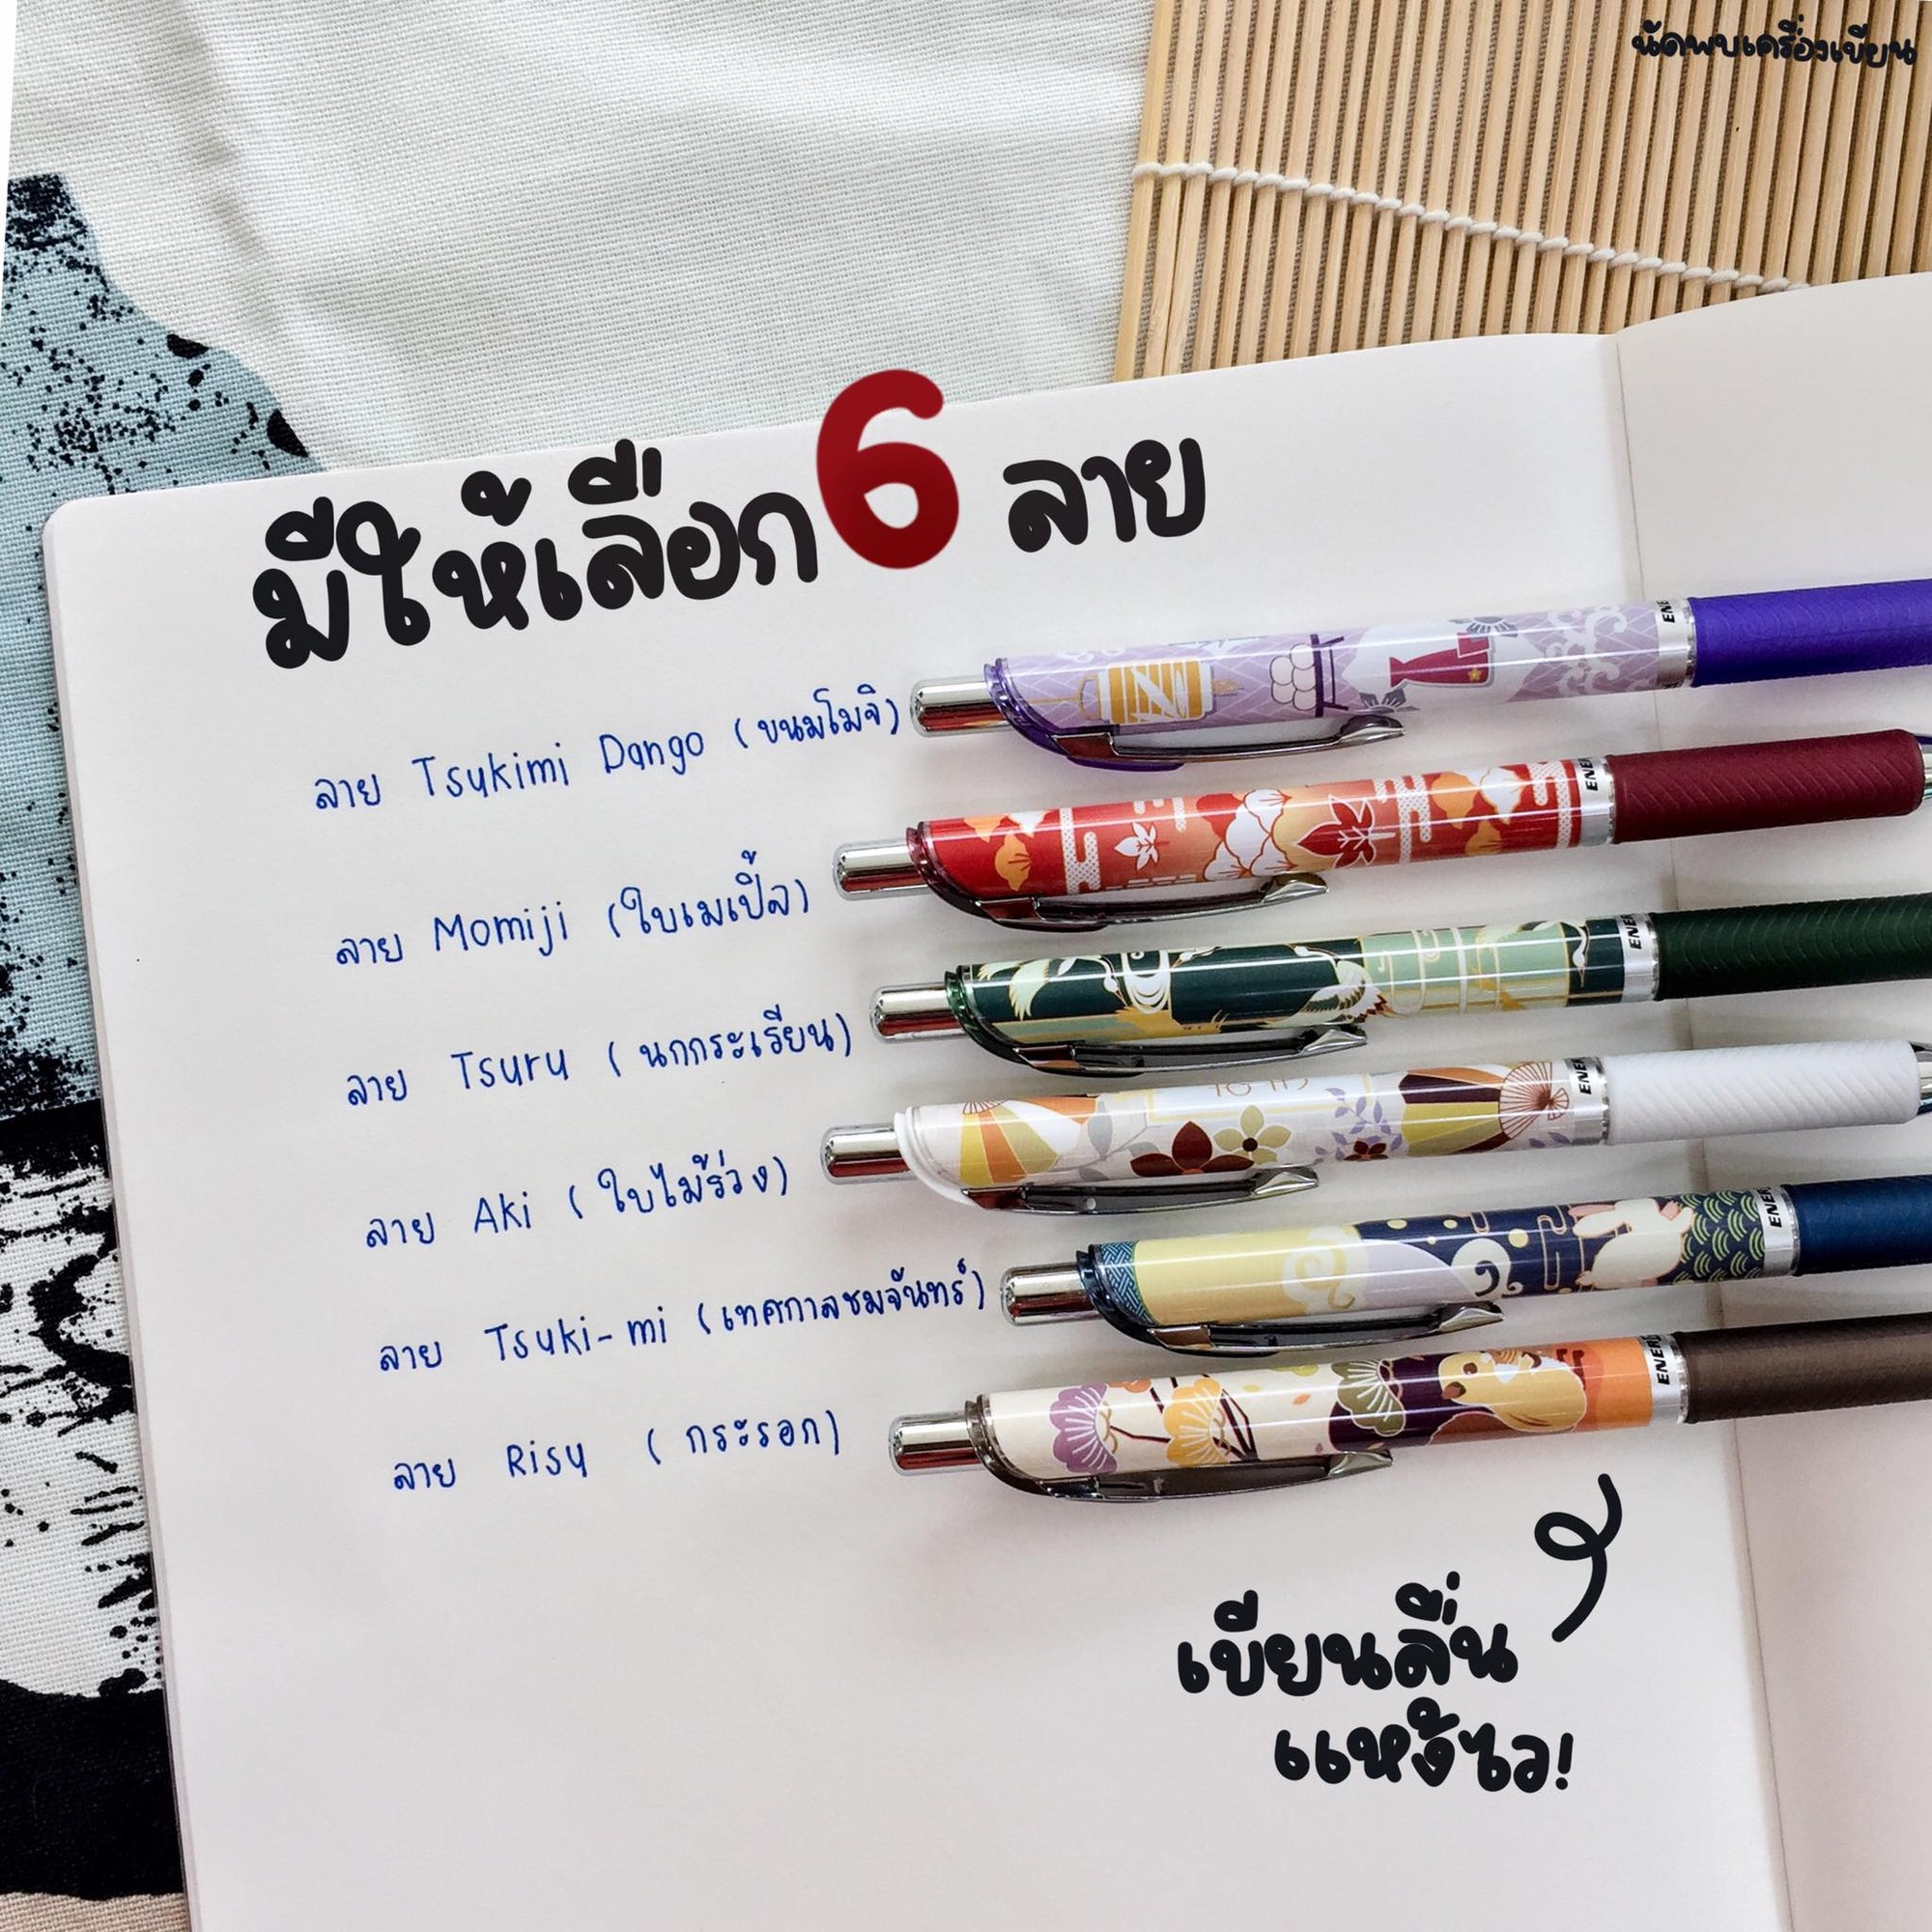 นัดพบเครื่องเขียน
มีให้เลือก 6 ลาย
ลาย Tsukimi Dango (ขนมโมจิ)
ลาย Momiji (ใบเมเปิ้ล)
ลาย Tsuru (นกกระเรียน)
ลาย Aki (ใบไม้ร่วง)
ลาย Tsuki-mi (เทศกาลชมจันทร์)
ลาย Risu (กระรอก)
ENER
ENER
ENER
ENER
ENER
เขียนลื่น
แห้งไว!